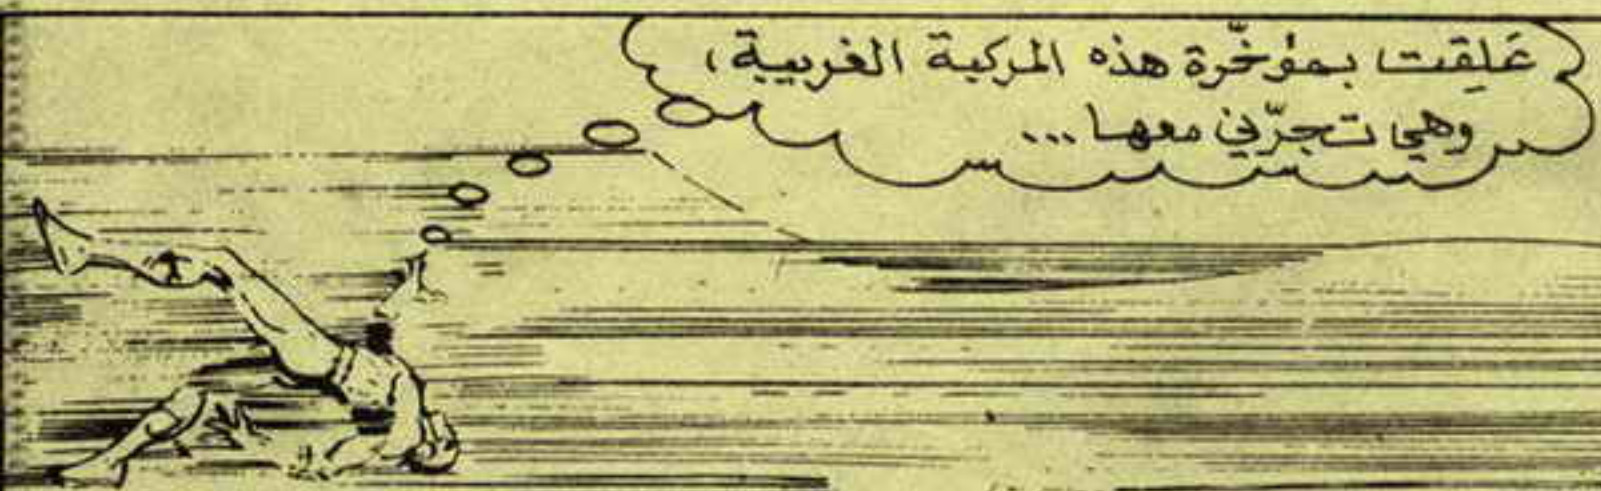 عَلِقت بمؤخّرة هذه المركبة الغريبة،
وهي تجرّني معها...